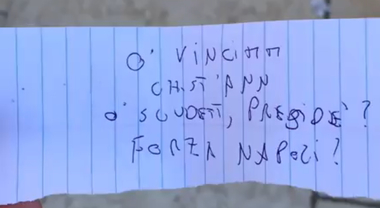 O' VINCIMM
CHIST'ANN
O' SCUDETT, PRESIDE'?
FORZA NAPOLI?